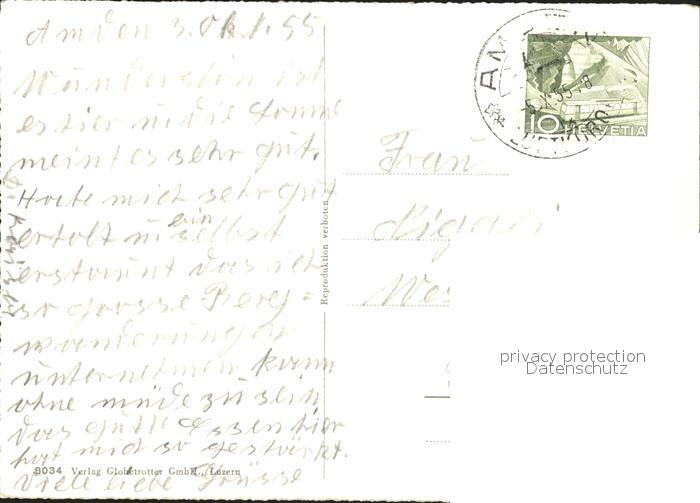 Amden 3. Okt. 55
Wunderschön ist
es hier u. die Sonne
meint es sehr gut.
Habe mich sehr gut
erholt u. bin selbst
erstaunt das ich
so grosse Berg=
wanderungen
unternehmen kann
ohne müde zu sein
das gute Essen hier
hat mich so gestärkt.
Viele liebe Grüsse
8034 Verlag Globetrotter GmbH., Luzern
Reproduktion verboten
AM
LUFTKURO
10 HELVETIA
Frau
privacy protection
Datenschutz